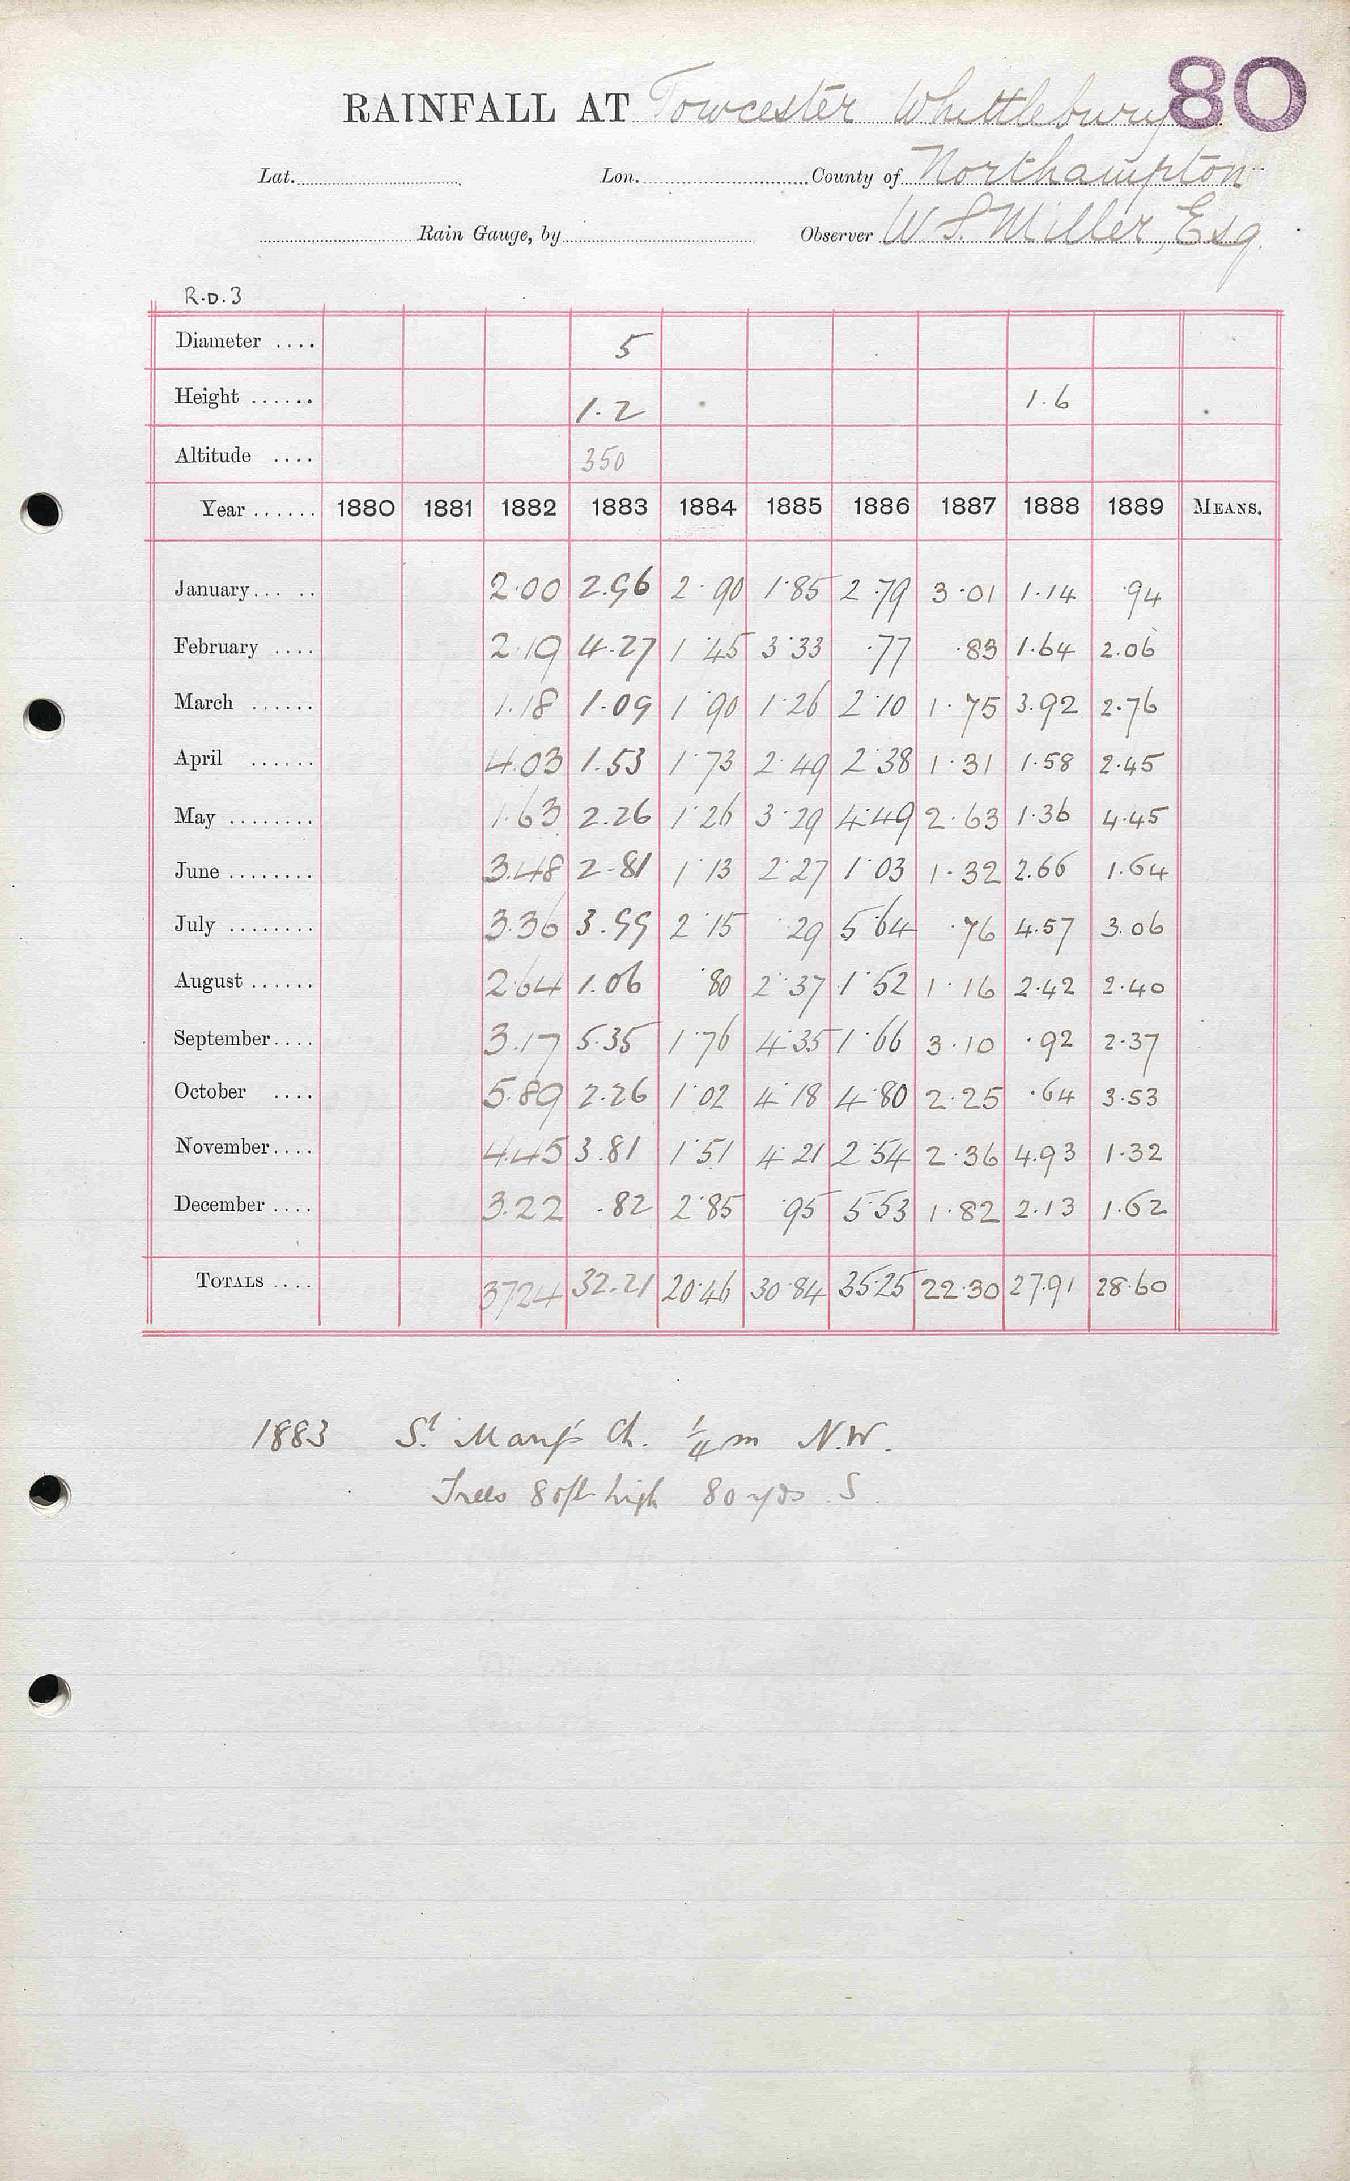 80
RAINFALL AT Towcester Whittlebury
Lat. Lon. County of Northampton
Rain Gauge, by Observer W. S. Miller, Esq.
R.D.3
Diameter .... 5
Height ...... 1.2 1.6
Altitude .... 350
Year ...... 1880 1881 1882 1883 1884 1885 1886 1887 1888 1889 MEANS.
January... .. 2.00 2.96 2.90 1.85 2.79 3.01 1.14 .94
February .... 2.19 4.27 1.45 3.33 .77 .83 1.64 2.06
March ...... 1.18 1.09 1.90 1.26 2.10 1.75 3.92 2.76
April ...... 4.03 1.53 1.73 2.49 2.38 1.31 1.58 2.45
May ........ 1.63 2.26 1.26 3.29 4.49 2.63 1.36 4.45
June ........ 3.48 2.81 1.13 2.27 1.03 1.32 2.66 1.64
July ........ 3.36 3.99 2.15 .29 5.64 .76 4.57 3.06
August ...... 2.64 1.06 .80 2.37 1.52 1.16 2.42 2.40
September.... 3.17 5.35 1.76 4.35 1.66 3.10 .92 2.37
October .... 5.89 2.26 1.02 4.18 4.80 2.25 .64 3.53
November.... 4.45 3.81 1.51 4.21 2.54 2.36 4.93 1.32
December .... 3.22 .82 2.85 .95 5.53 1.82 2.13 1.62
TOTALS .... 37.24 32.21 20.46 30.84 35.25 22.30 27.91 28.60
1883 St. Mary's Ch. 1/4 m N.W.
Trees 80ft high 80 yds. S.